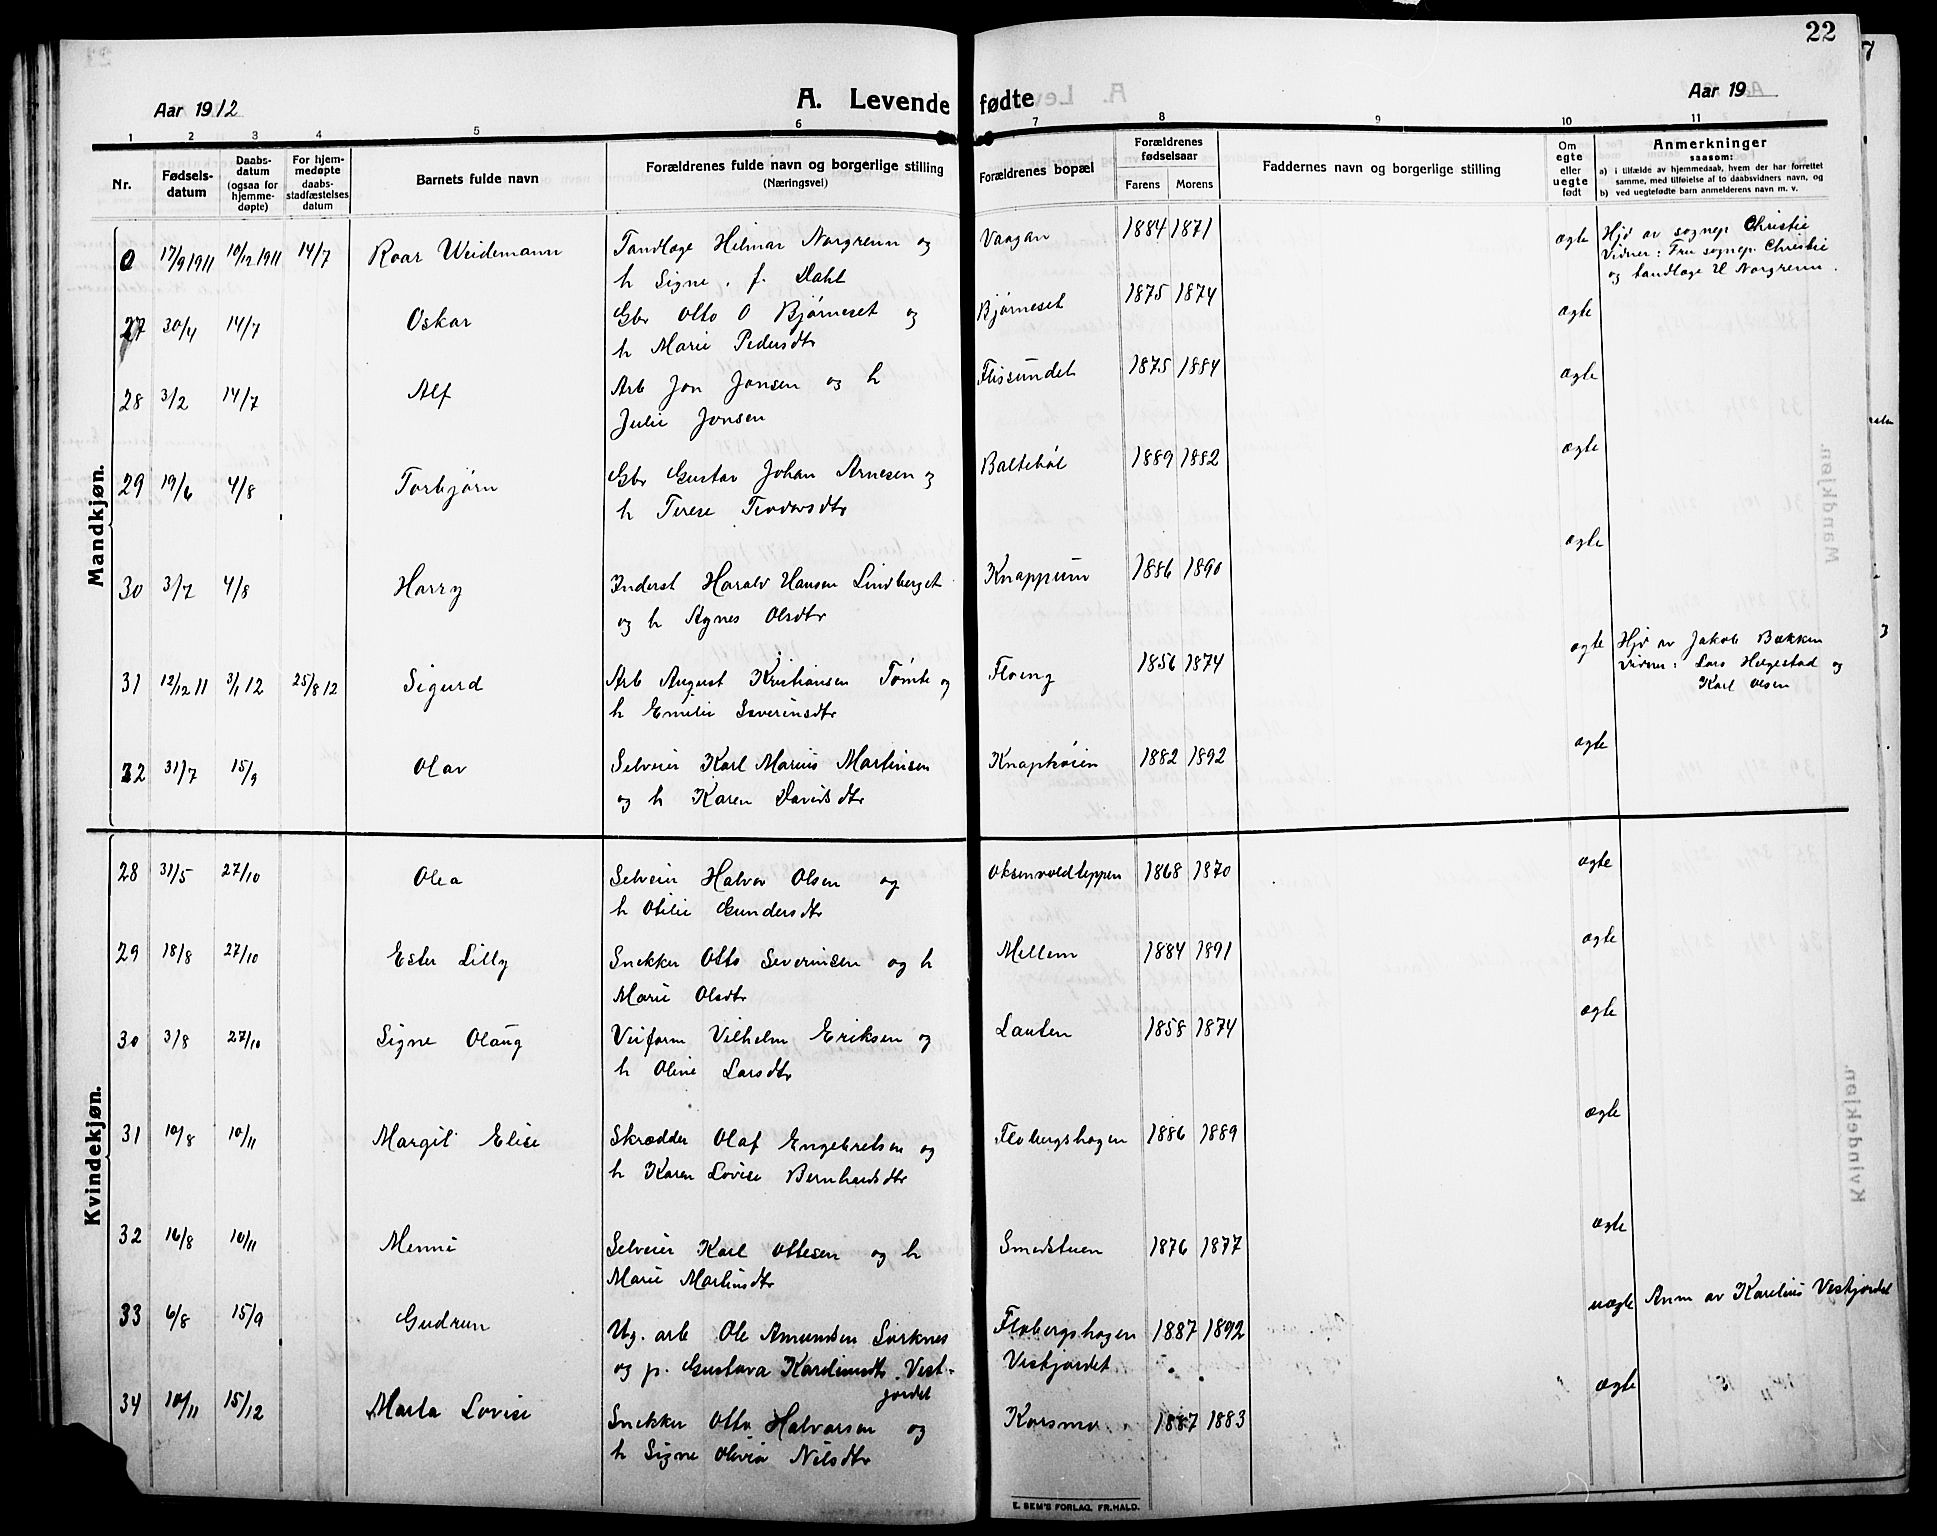 22
Aar 1912
A. Levende fødte
Aar 19
1 2 3 4 5 6 7 8 9 10 11
Nr.
Fødsels-
datum
Daabs-
datum
(ogsaa for
hjemme-
døpte)
For hjem-
medøpte
daabs-
stadfæstelses
datum
Barnets fulde navn
Forældrenes fulde navn og borgerlige stilling
(Næringsvei)
Forældrenes bopæl
Forældrenes
fødselsaar
Farens Morens
Faddernes navn og borgerlige stilling
Om
egte
eller
uegte
født
Anmerkninger
saasom:
a) i tilfælde av hjemmedaab, hvem der har forrettet
samme, med tilføielse af to daabsvidners navn, og
b) ved uegtefødte barn anmelderens navn m. v.
Mandkjøn.
0 17/9 1911 10/12 1911 14/7 Roar Weidemann Tandlæge Hilmar Norgrenn og Vaagan 1884 1871 ægte Hjd av sognep Christie
h Signe, f. Dahl Vidner: Fru sognep. Christie
og tandlæge H Norgrenn.
27 30/4 14/7 Oskar Gbr Otto O Bjørneset og Bjørneset 1875 1874 ægte
h Marie Pedersdtr
28 3/2 14/7 Alf Arb Jon Jonsen og h Flissundet 1875 1884 ægte
Julie Jonsen
29 19/6 4/8 Torbjørn Gbr Gustav Johan Arnesen og Baltehøl 1889 1882 ægte
h Terese Teodorsdtr
30 3/7 4/8 Harry Inderst Harald Hansen Lindberget Knappum 1886 1890 ægte
og h Agnes Olsdtr
31 12/12 11 3/1 12 25/8 12 Sigurd Arb August Kristiansen Tømte og Floeng 1856 1874 ægte Hjd av Jakob Bækken
h Emilie Severinsdtr Vidner: Lars Hægestad og
Karl Olsen
32 31/7 15/9 Olav Selveier Karl Marius Martinsen Knaphøien 1882 1892 ægte
og h Karen Davidsdtr
Kvindekjøn.
28 31/5 27/10 Olea Selveier Halvor Olsen og Oksenvoldteppen 1868 1870 ægte
h Otilie Gundersdtr
29 18/8 27/10 Ester Lilly Snekker Otto Severinsen og h Mellem 1884 1891 ægte
Marie Olsdtr
30 3/8 27/10 Signe Olaug Veiform Vilhelm Eriksen og Lauten 1858 1874 ægte
h Oline Larsdtr
31 10/8 10/11 Margit Elise Skrædder Olaf Engebretsen og Flobergshagen 1886 1889 ægte
h Karen Lovise Bernhardsdtr
32 16/8 10/11 Menni Selveier Karl Ottesen og h Smedstuen 1876 1877 ægte
Marie Martinsdtr
33 6/8 15/9 Gudrun Ug. arb Ole Amundsen Lørknes Flobergshagen 1887 1892 uægte Anm av Karelius Vestjordet
og p. Gustava Kareliusdtr Vest- Vestjordet
jordet
34 10/11 15/12 Marta Lovise Snekker Otto Halvorsen og Korsmo 1887 1883 ægte
h Signe Olivia Nilsdtr
E. SEM'S FORLAG. FR.HALD.